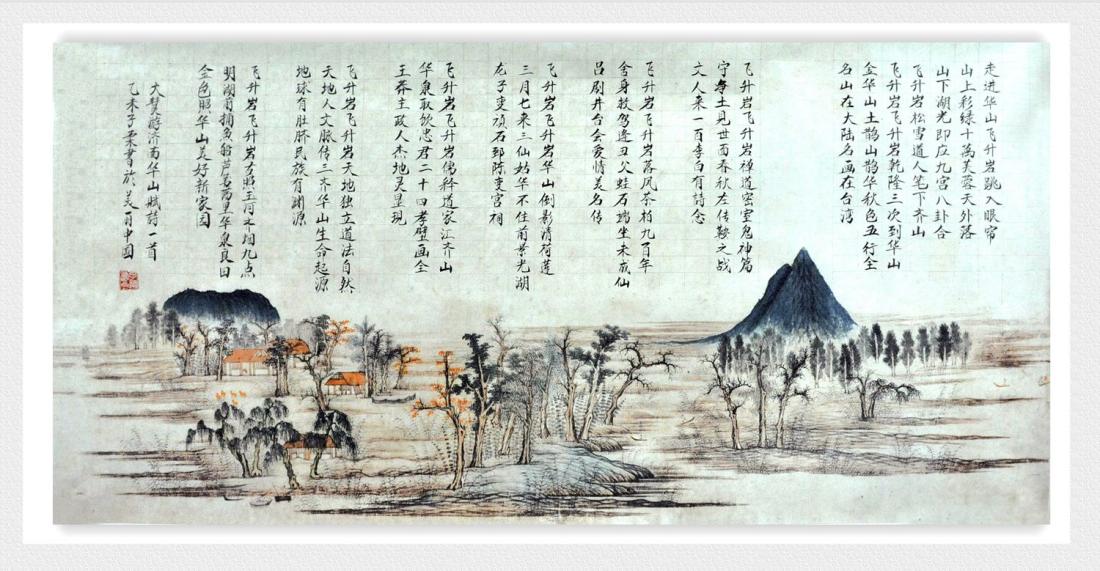 走进华山飞升岩跳入眼帘
山上彩绿十萬芙蓉天外落
山下湖光即应九宫八卦合
飞升岩松雪道人笔下齐山
飞升岩飞升岩乾隆三次到华山
金华山土鹊山鹊华秋色五行全
名山在大陆名画在台湾
飞升岩飞升岩禅道密室鬼神篇
守孝土见世面春秋左传鞍之战
文人来一百李白有诗念
飞升岩飞升岩落风茶柏九百年
舍身救驾逢丑父蛙石端坐未成仙
吕剧井台会爱情美名传
飞升岩飞升岩华山倒影清荷莲
三月七来三仙姑华不住前景光湖
龙子变碩石郅陈变宫祠
飞升岩飞升岩儒释道家汇齐山
华泉取饮忠君二十四孝壁画全
王莽主政人杰地灵呈现
飞升岩飞升岩天地独立道法自然
天地人文脉传三齐华山生命起源
地球有肚脐民族有渊源
飞升岩飞升岩古照玉河齐烟九点
明湖莆捕魚翁芦荟两里华泉良田
金色照华山美好新家园
大贤游济南华山赋诗一首
乙未子栗書於美一百中國